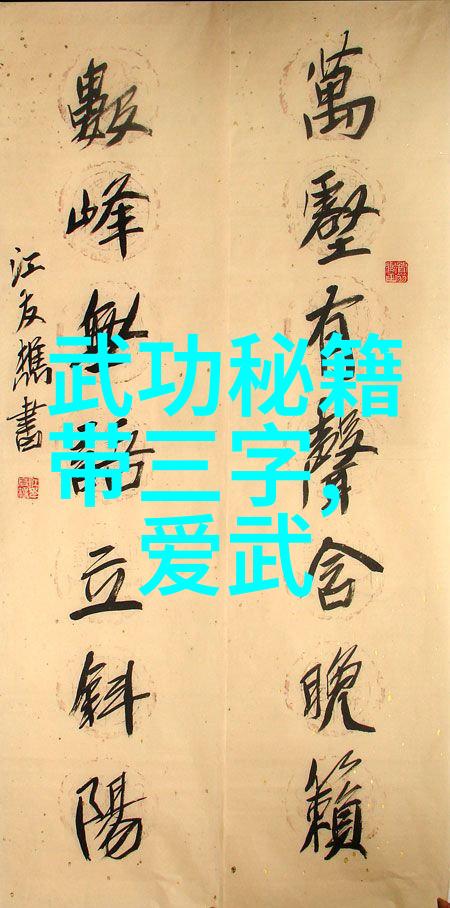 萬壑有聲含晚籟
數峰無語立斜陽
江友樵書
武功秘籍
带三字，
爱武